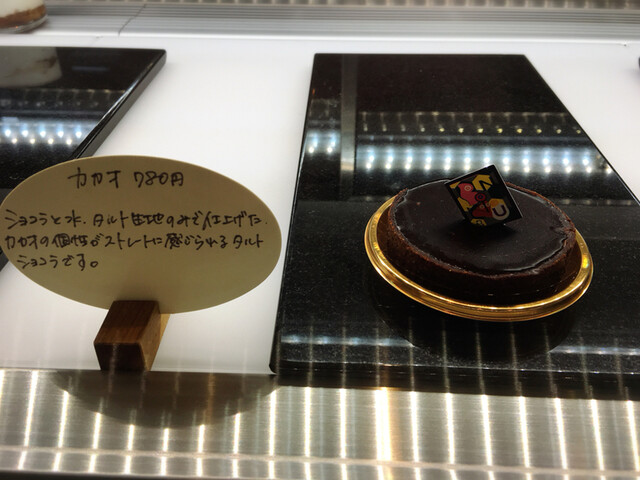 カカオ 780円
ショコラと水、タルト生地のみで仕上げた、
カカオの個性がストレートに感じられるタルト
ショコラです。